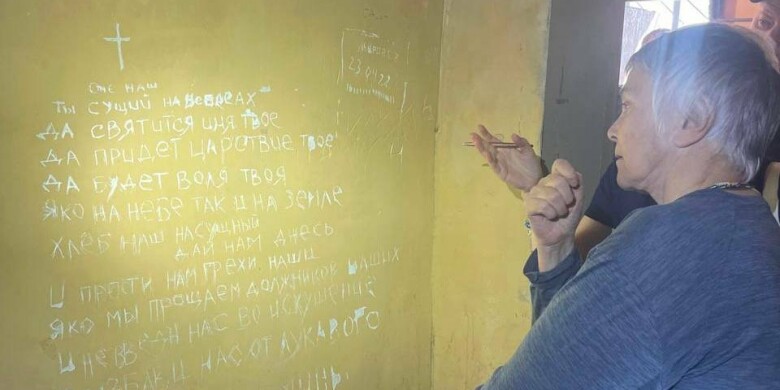 отче наш
ты сущий на небесах
да святится имя твое
да придет царствие твое
да будет воля твоя
яко на небе так и на земле
хлеб наш насущный
дай нам днесь
и прости нам грехи наши
яко мы прощаем должников наших
и не введи нас во искушение
нас от лукавого
23.04.22